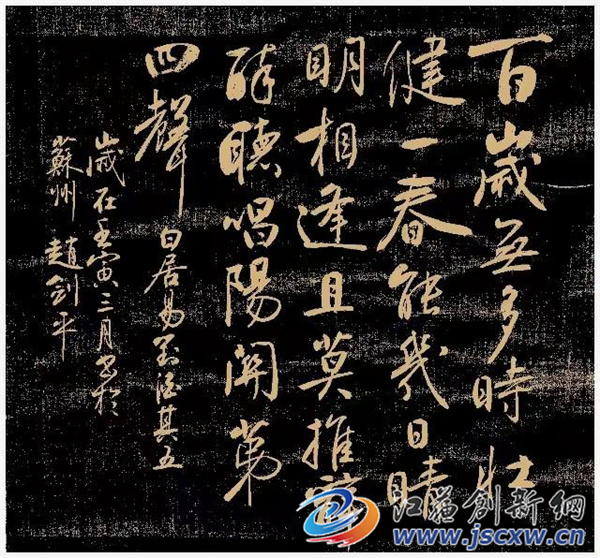 百歲無多時壯
健一春能幾日晴
明相逢且莫推辭
醉聽唱陽關第
四聲 白居易對酒其五
歲在壬寅三月書於
蘇州 趙劍平
江蘇創新網
www.jscxw.cn